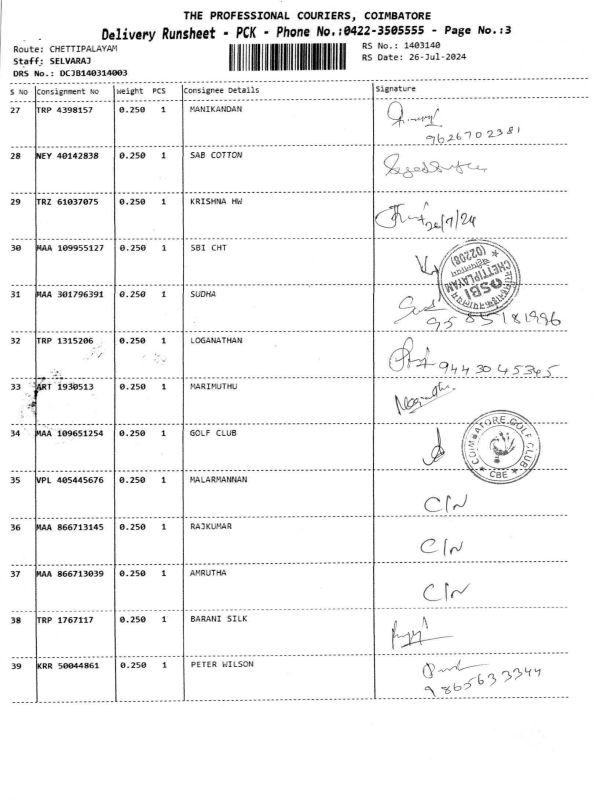 THE PROFESSIONAL COURIERS, COIMBATORE
Delivery Runsheet - PCK - Phone No.:0422-3505555 - Page No.:3
Route: CHETTIPALAYAM RS No.: 1403140
Staff: SELVARAJ RS Date: 26-Jul-2024
DRS No.: DCJB140314003
S No Consignment No Weight PCS Consignee Details Signature
27 TRP 4398157 0.250 1 MANIKANDAN
9626702381
28 NEY 40142838 0.250 1 SAB COTTON
29 TRZ 61037075 0.250 1 KRISHNA HW
26/7/24
30 MAA 109955127 0.250 1 SBI CHT
SBI CHETTIPLAYAM (02208)
31 MAA 301796391 0.250 1 SUDHA
95 85181996
32 TRP 1315206 0.250 1 LOGANATHAN
9443045345
33 ART 1930513 0.250 1 MARIMUTHU
34 MAA 109651254 0.250 1 GOLF CLUB
COIMBATORE GOLF CLUB
CBE
35 VPL 405445676 0.250 1 MALARMANNAN
C/N
36 MAA 866713145 0.250 1 RAJKUMAR
C/N
37 MAA 866713039 0.250 1 AMRUTHA
C/N
38 TRP 1767117 0.250 1 BARANI SILK
39 KRR 50044861 0.250 1 PETER WILSON
9865633344